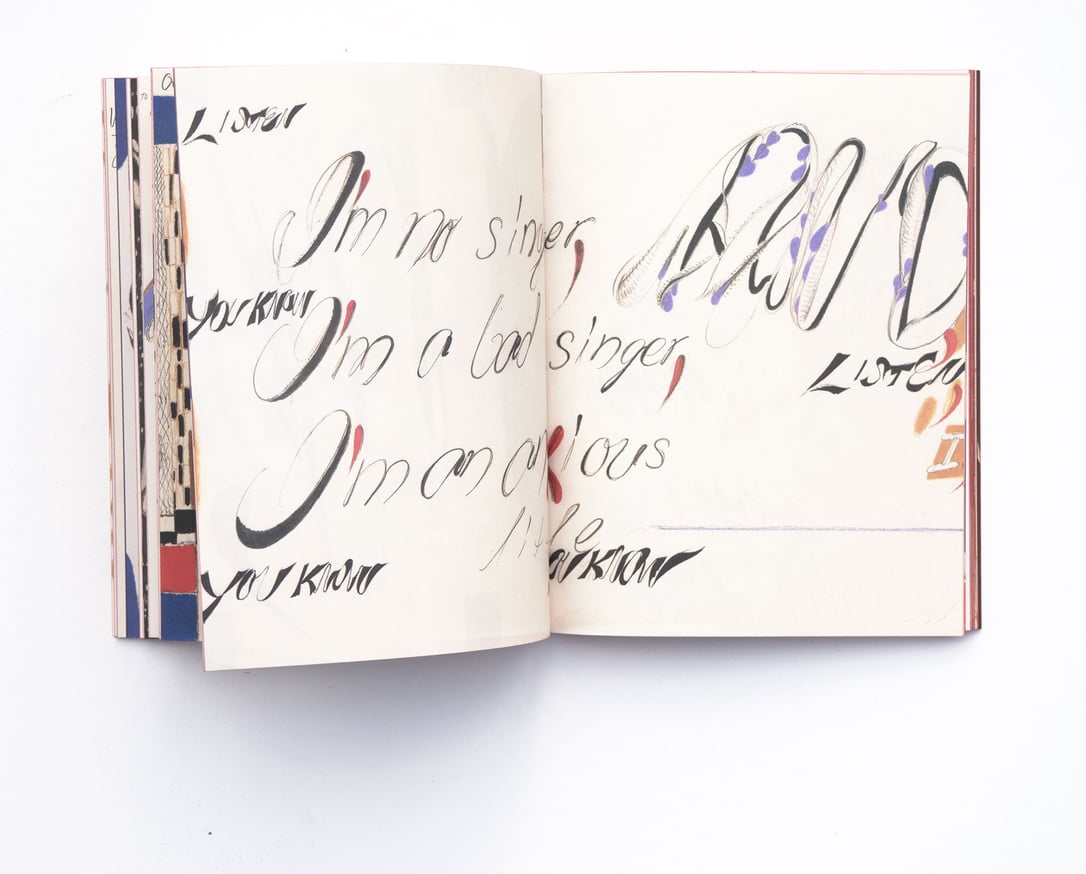 LISTEN
I'm no singer,
YOU KNOW
I'm a bad singer,
I'm an anxious
YOU KNOW
YOU KNOW
AND
LISTEN